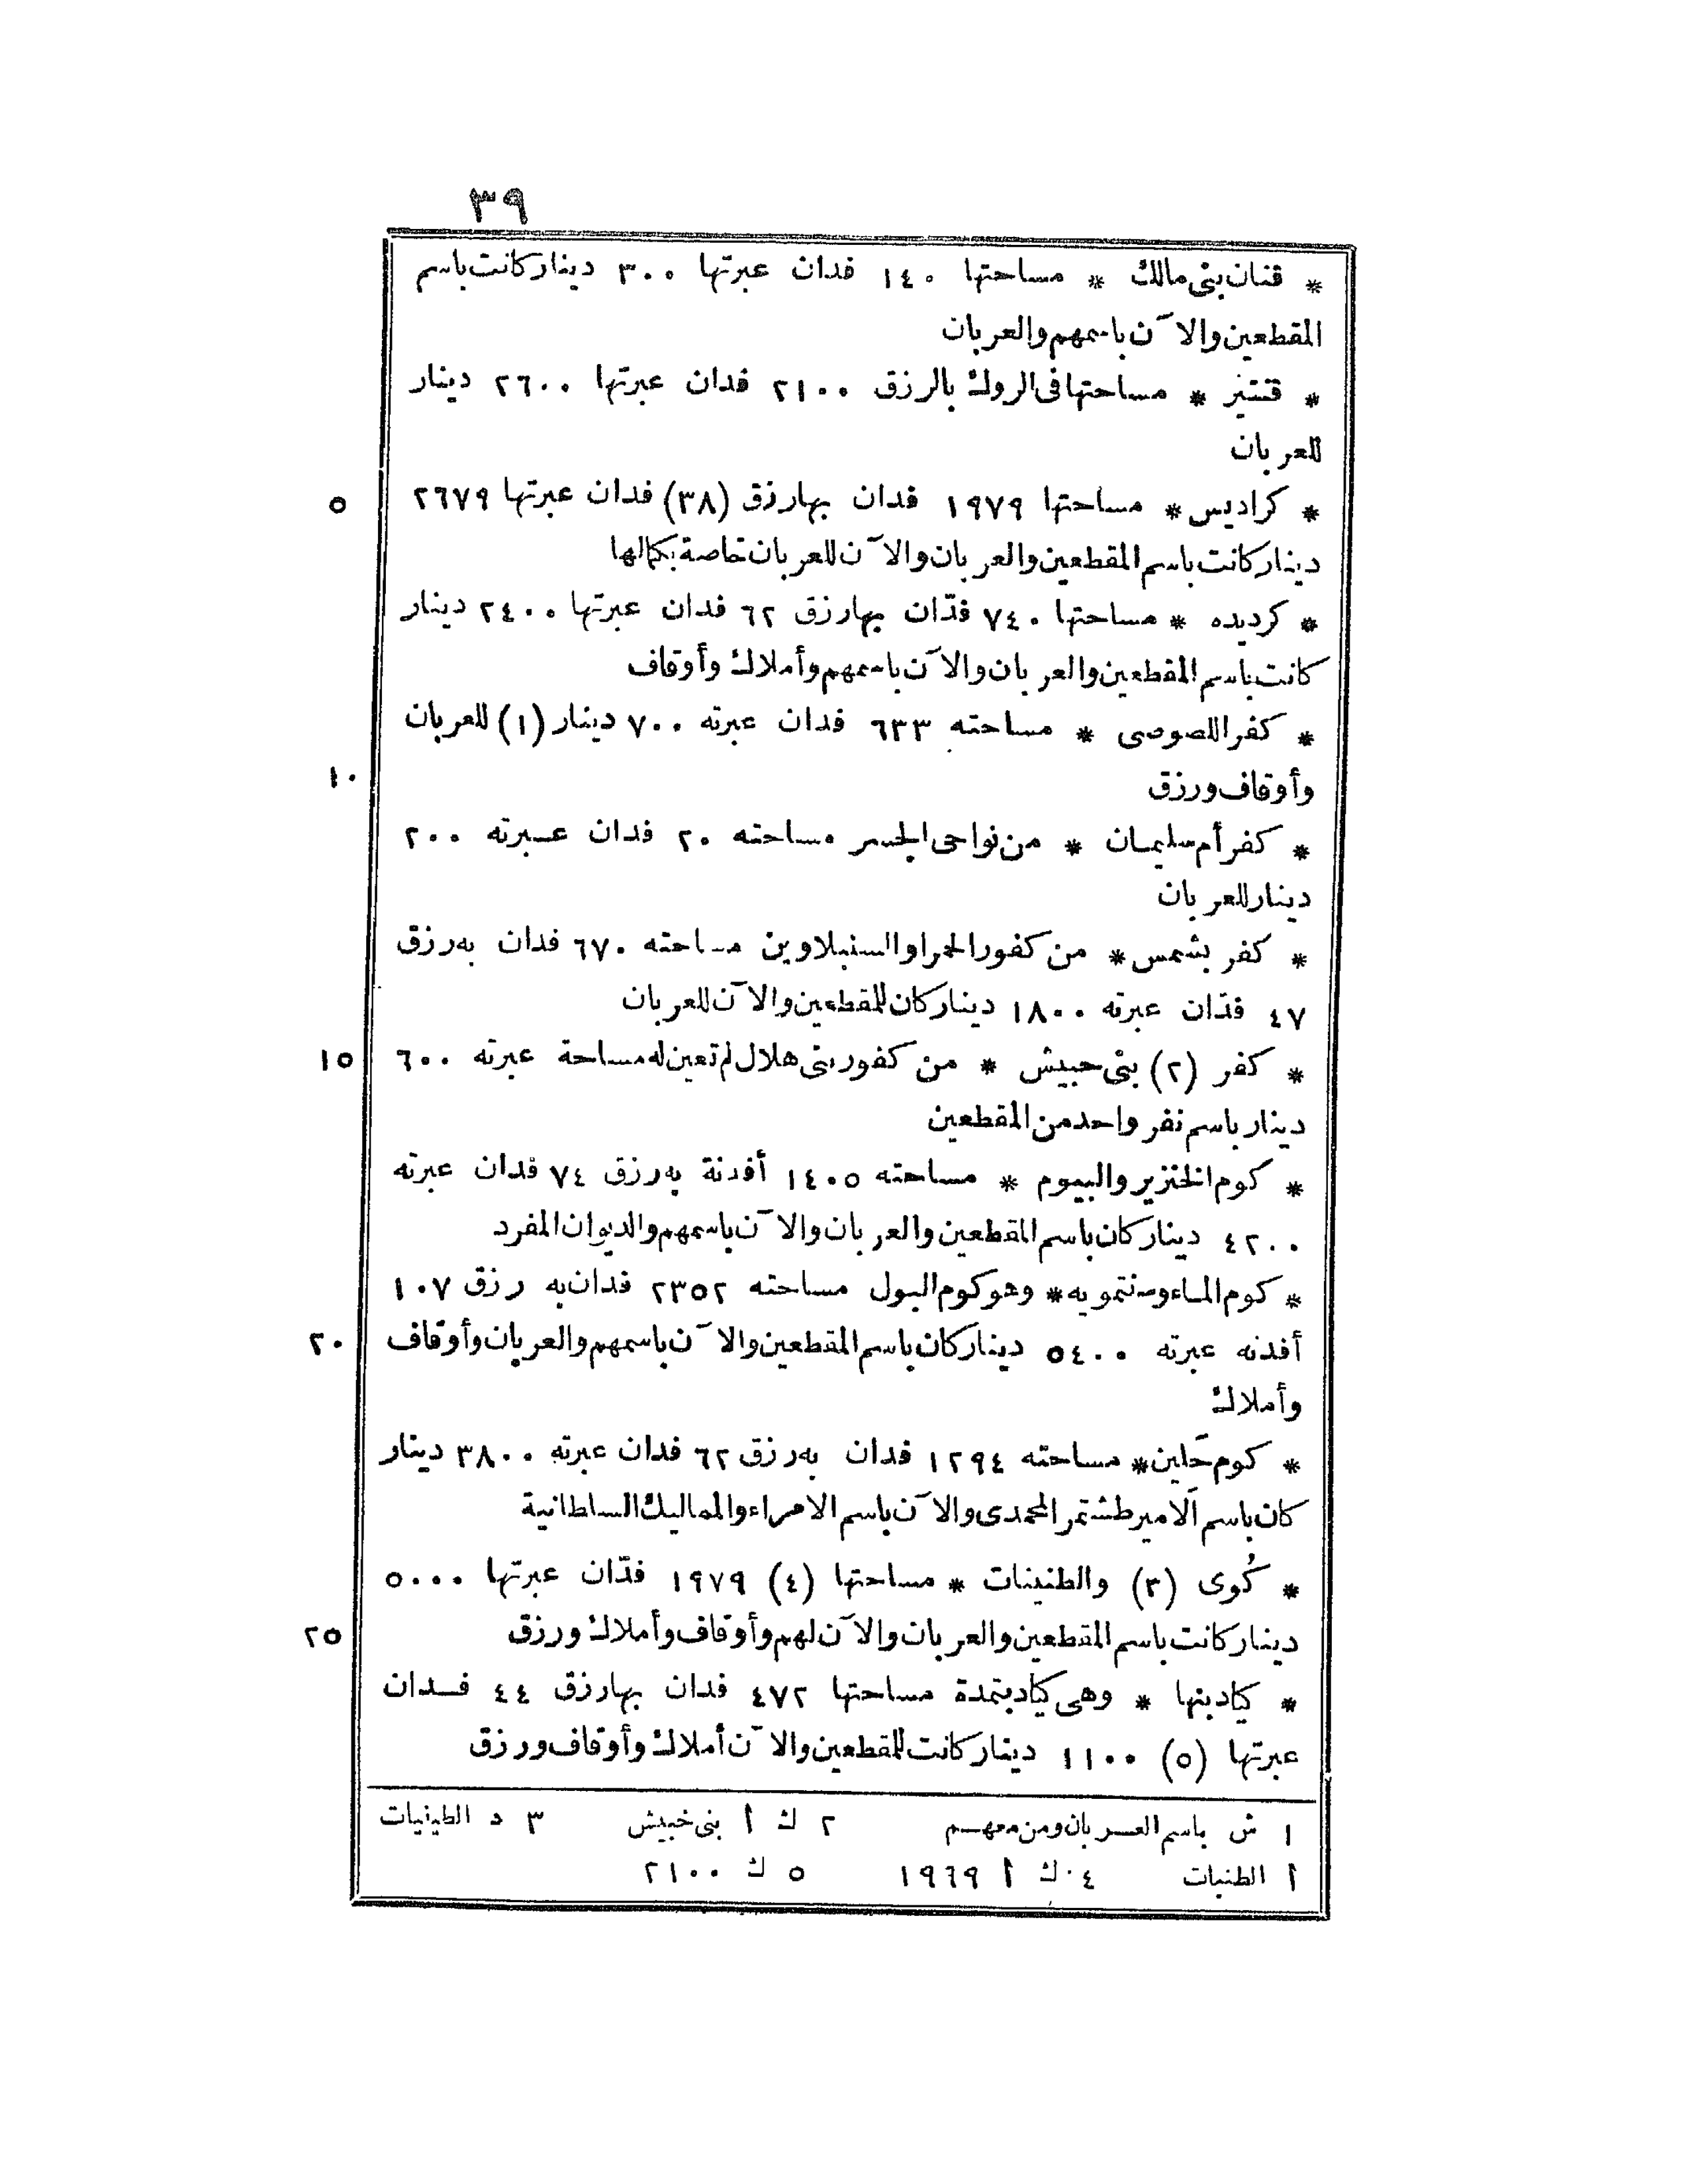 ٣٩
* قنان بنى مالك * مساحتها ١٤٠ فدان عبرتها ٣٠٠ دينار كانت باسم
المقطعين والآن باسمهم والعربان
* قتتيز * مساحتها فى الروك بالرزق ٢١٠٠ فدان عبرتها ٢٦٠٠ دينار
للعربان
* كراديس * مساحتها ١٩٧٩ فدان بها رزق (٣٨) فدان عبرتها ٢٦٧٩
٥
دينار كانت باسم المقطعين والعربان والآن للعربان خاصة بكمالها
* كرديده * مساحتها ٧٤٠ فدّان بها رزق ٦٢ فدان عبرتها ٢٤٠٠ دينار
كانت باسم المقطعين والعربان والآن باسمهم وأملاك وأوقاف
* كفر اللصوصى * مساحته ٦٣٣ فدان عبرته ٧٠٠ دينار (١) للعربان
وأوقاف ورزق
١٠
* كفر أم سليمان * من نواحى الجسر مساحته ٢٠ فدان عبرته ٢٠٠
دينار للعربان
* كفر بشمس * من كفور الحمرا والسنبلاوين مساحته ٦٧٠ فدان به رزق
٤٧ فدّان عبرته ١٨٠٠ دينار كان للمقطعين والآن للعربان
* كفر (٢) بنى حبيش * من كفور بنى هلال لم تعين له مساحة عبرته ٦٠٠
١٥
دينار باسم نفر واحد من المقطعين
* كوم الخنزير والبيوم * مساحته ١٤٠٥ أفدنة به رزق ٧٤ فدان عبرته
٤٢٠٠ دينار كان باسم المقطعين والعربان والآن باسمهم والديوان المفرد
* كوم الماء وسنتمويه * وهو كوم البول مساحته ٢٣٥٢ فدان به رزق ١٠٧
أفدنه عبرته ٥٤٠٠ دينار كان باسم المقطعين والآن باسمهم والعربان وأوقاف
٢٠
وأملاك
* كوم حَلين * مساحته ١٢٩٤ فدان به رزق ٦٢ فدان عبرته ٣٨٠٠ دينار
كان باسم الامير طشتمر المحمدى والآن باسم الامراء والمماليك السلطانية
* كُوى (٣) والطنينات * مساحتها (٤) ١٩٧٩ فدّان عبرتها ٥٠٠٠
دينار كانت باسم المقطعين والعربان والآن لهم وأوقاف وأملاك ورزق
٢٥
* كيادبنها * وهى كياد بتمدة مساحتها ٤٧٢ فدان بها رزق ٤٤ فدان
عبرتها (٥) ١١٠٠ دينار كانت للمقطعين والآن أملاك وأوقاف ورزق
١ ش باسم العربان ومن معهم ٢ ك أ بنى خبيش ٣ د الطينيات
أ الطنبات ٤ ك أ ١٩٦٩ ٥ ك ٢١٠٠